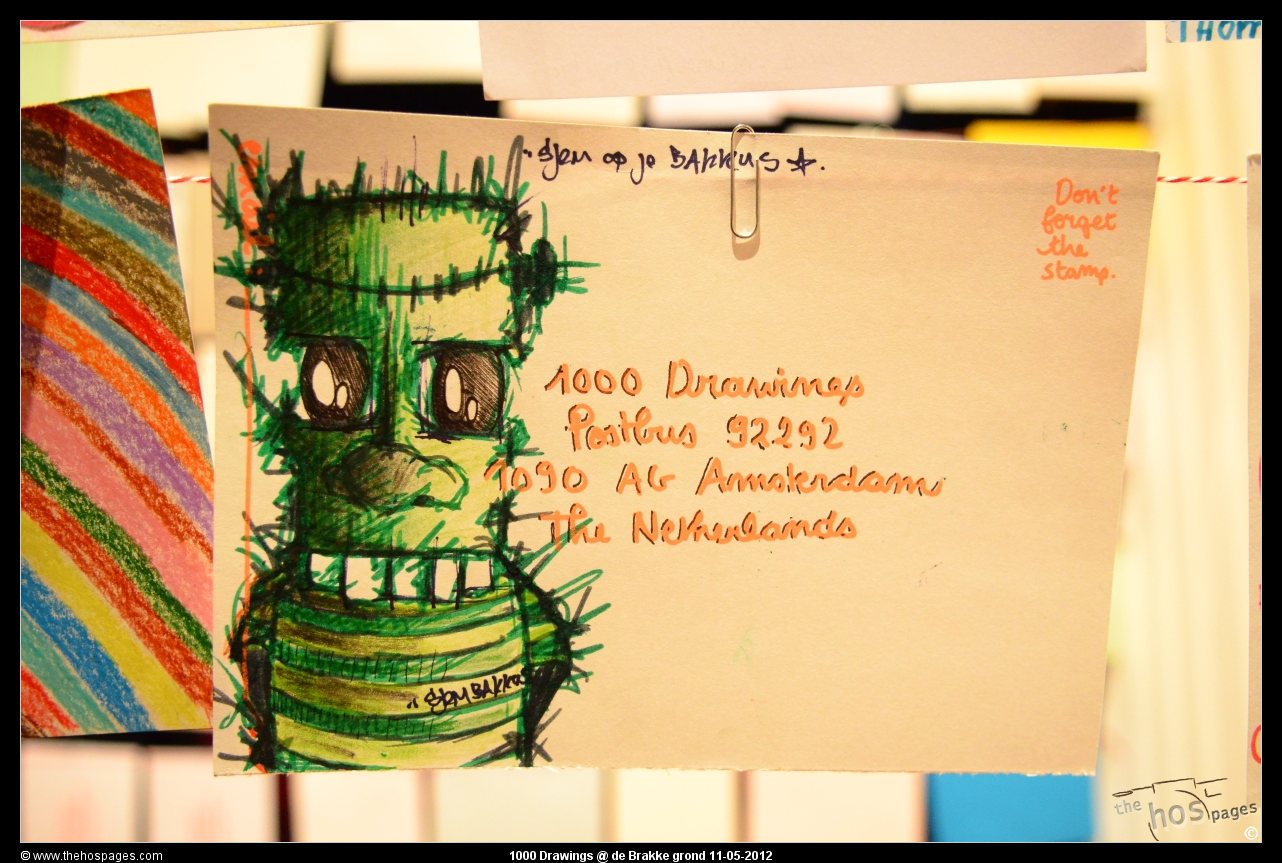 THOM
"SJEM op je BAKKUS ☆.
Don't
forget
the
stamp.
1000 Drawings
Postbus 92292
1090 AG Amsterdam
The Netherlands
"SJEM BAKKUS
the hos pages
©
© www.thehospages.com
1000 Drawings @ de Brakke grond 11-05-2012